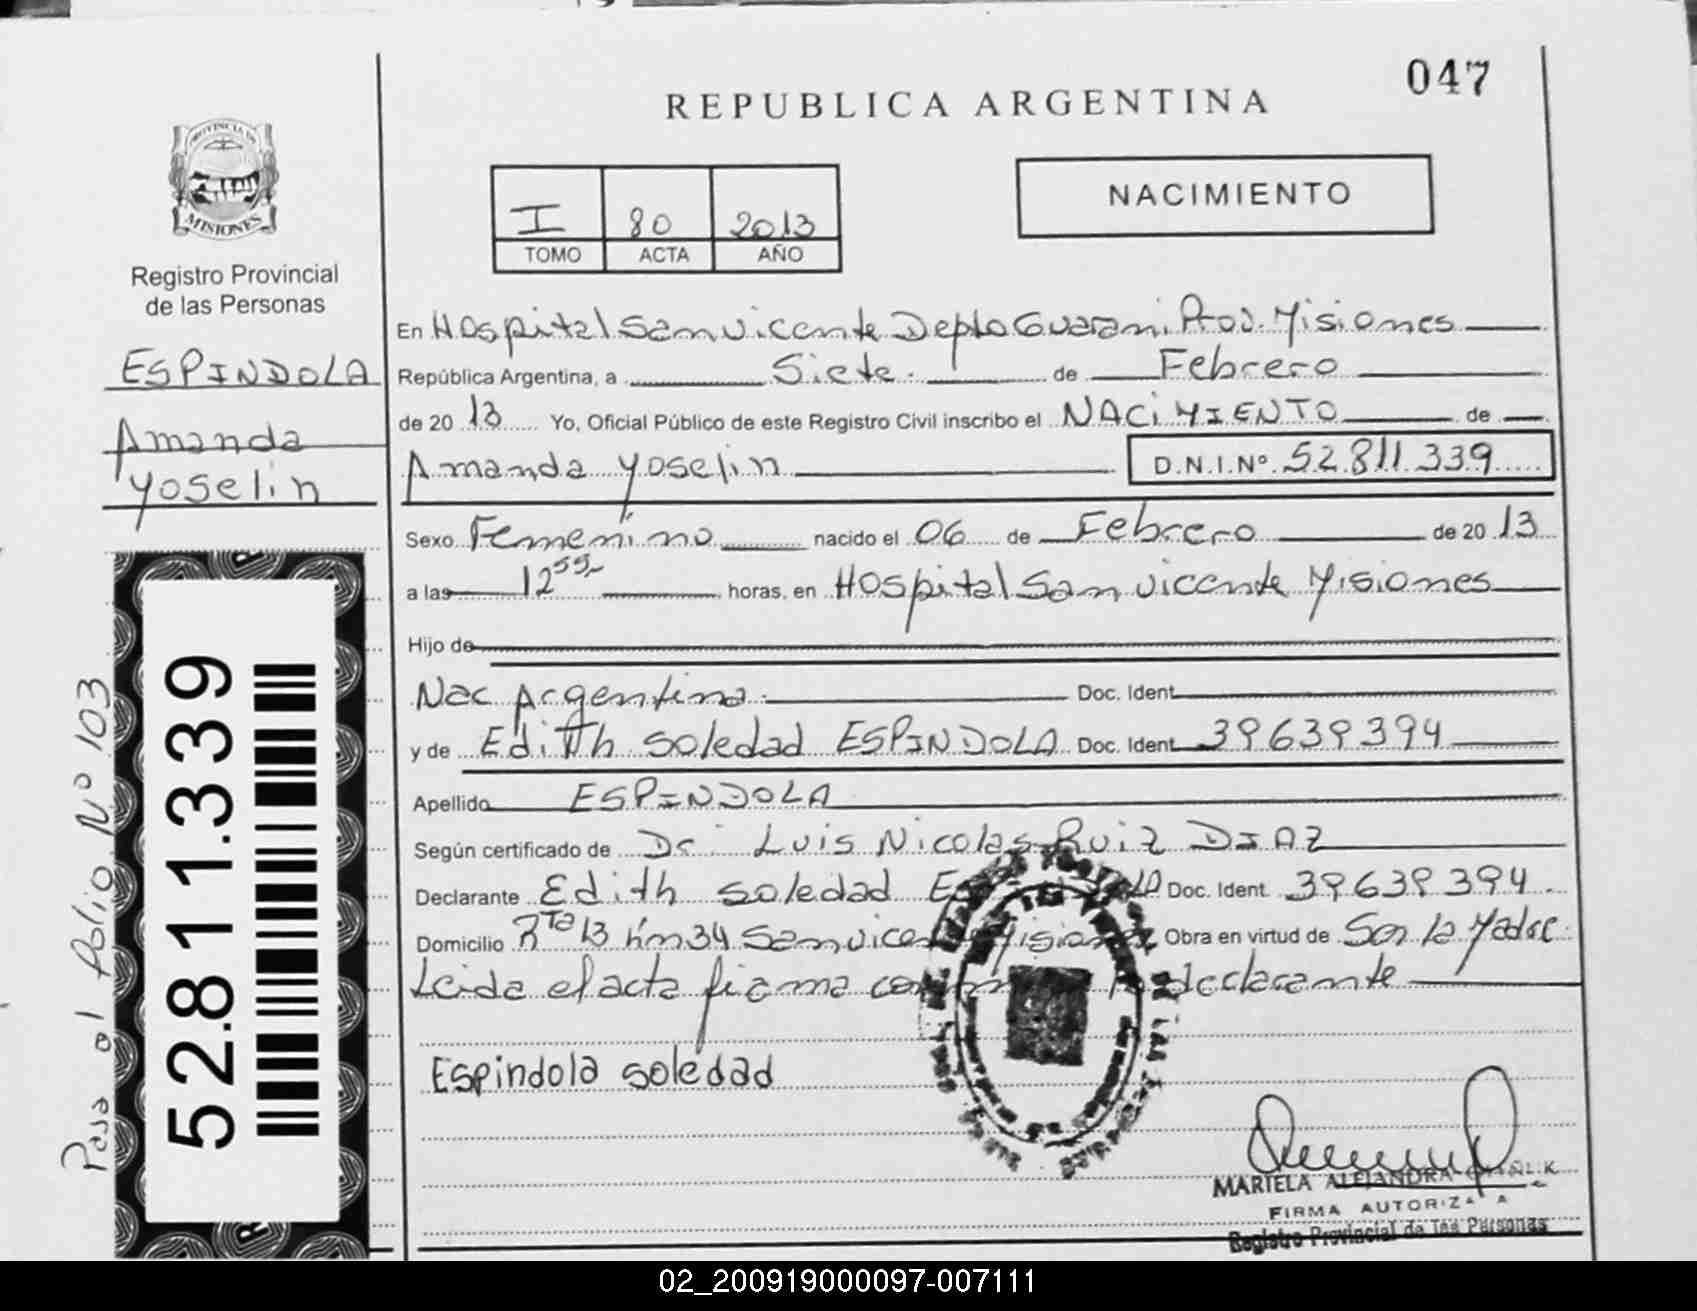 047
REPUBLICA ARGENTINA
PROVINCIA DE
MISIONES
Registro Provincial
de las Personas
ESPINDOLA
Amanda
Yoselin
I 80 2013
TOMO ACTA AÑO
NACIMIENTO
En Hospital San vicente Depto Guarani Prov. Misiones
República Argentina, a Siete. de Febrero
de 20 13 Yo, Oficial Público de este Registro Civil inscribo el NACIMIENTO de
Amanda Yoselin D.N.I.Nº 52.811.339
Sexo Femenino nacido el 06 de Febrero de 20 13
a las 12 55 horas, en Hospital San vicente Misiones
Hijo de
Nac Argentina. Doc. Ident.
y de Edith Soledad ESPINDOLA Doc. Ident. 39639394
Apellido ESPINDOLA
Según certificado de Dr. Luis Nicolas Ruiz DIAZ
Declarante Edith Soledad Doc. Ident. 39639394
Domicilio Rta 13 km 34 San Obra en virtud de Ser la Madre
Leida el acta firma declarante
Espindola soledad
MARIELA ALEJANDRA
FIRMA AUTORIZADA
Registro Provincial de las Personas
52.811.339
Pasa al Folio Nº 103
02_200919000097-007111